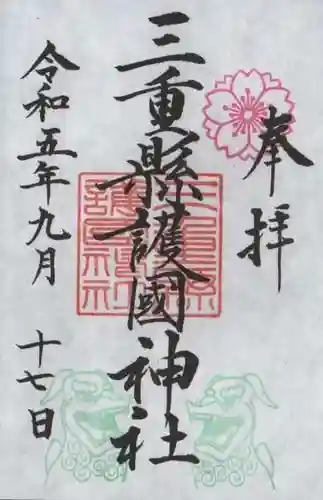 奉拝
三重縣護國神社
三重県護国神社
令和五年九月十七日